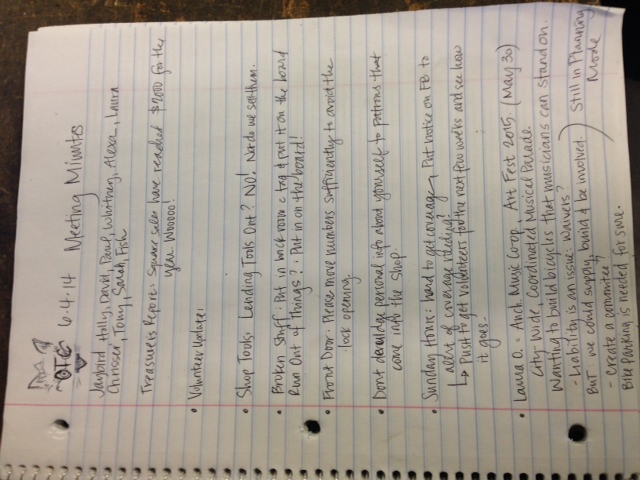 6.4.14 Meeting Minutes
Jaybird, Holly, David, Paul, Whitney, Alexa, Laura
Chrisser, Tony, Sarah, Fish
Treasurer's Report: Square sales have reached $2000 for the
year. Wooooo!
• Volunteer Update:
• Shop Tools: Lending Tools Out? NO! Nor do we sell them.
• Broken Stuff: Put in back room c tag & put it on the board
Run Out of Things?: Put in on the board!
• Front Door: Please move numbers sufficiently to avoid the
lock opening.
• Dont divuldge personal info about yourself to patrons that
come into the shop.
• Sunday Hours: hard to get coverage, Put notice on FB to
alert of coverage needed?
↳ Push to get volunteers for the next few weeks and see how
it goes.
• Laura O. = Anch. Music Coop. Art Fest 2015 (May 30)
City Wide Coordinated Musical Parade.
Wanting to build bicycles that musicians can stand on.
- Liability is an issue. Waivers?
But we could supply, build & be involved. ) Still in Planning
Mode
- Create a committee?
Bike Parking is needed for sure.